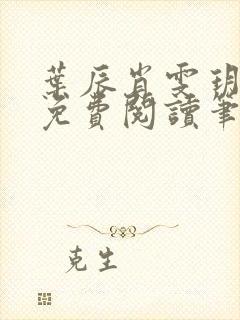 葉辰肖雯玥
免費閱讀筆
克生